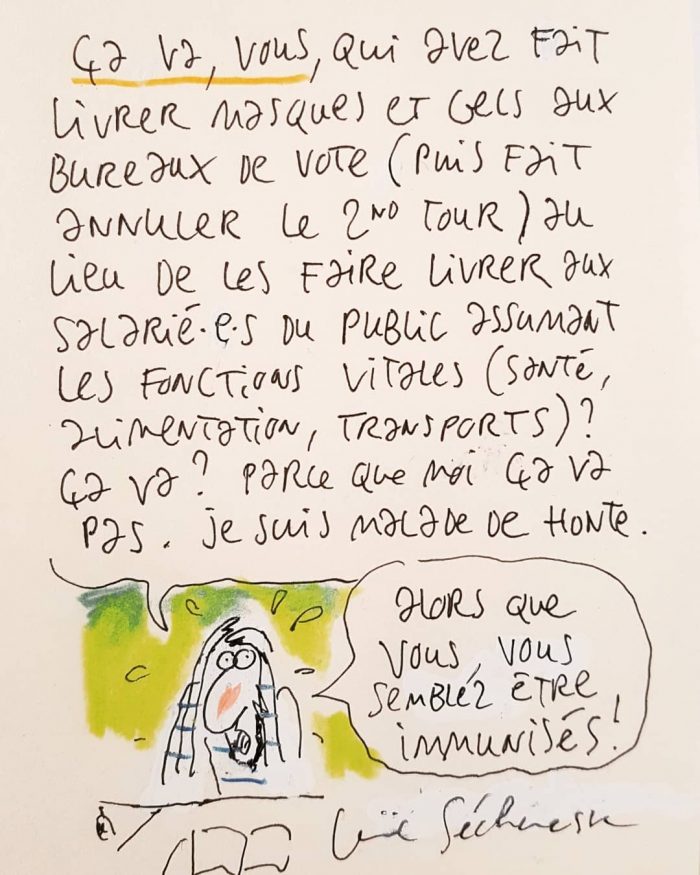 ça va, vous, qui avez fait
livrer masques et gels aux
bureaux de vote (puis fait
annuler le 2nd tour) au
lieu de les faire livrer aux
salarié·e·s du public assumant
les fonctions vitales (santé,
alimentation, transports)?
ça va? parce que moi ça va
pas. je suis malade de honte.
alors que
vous, vous
semblez être
immunisés!